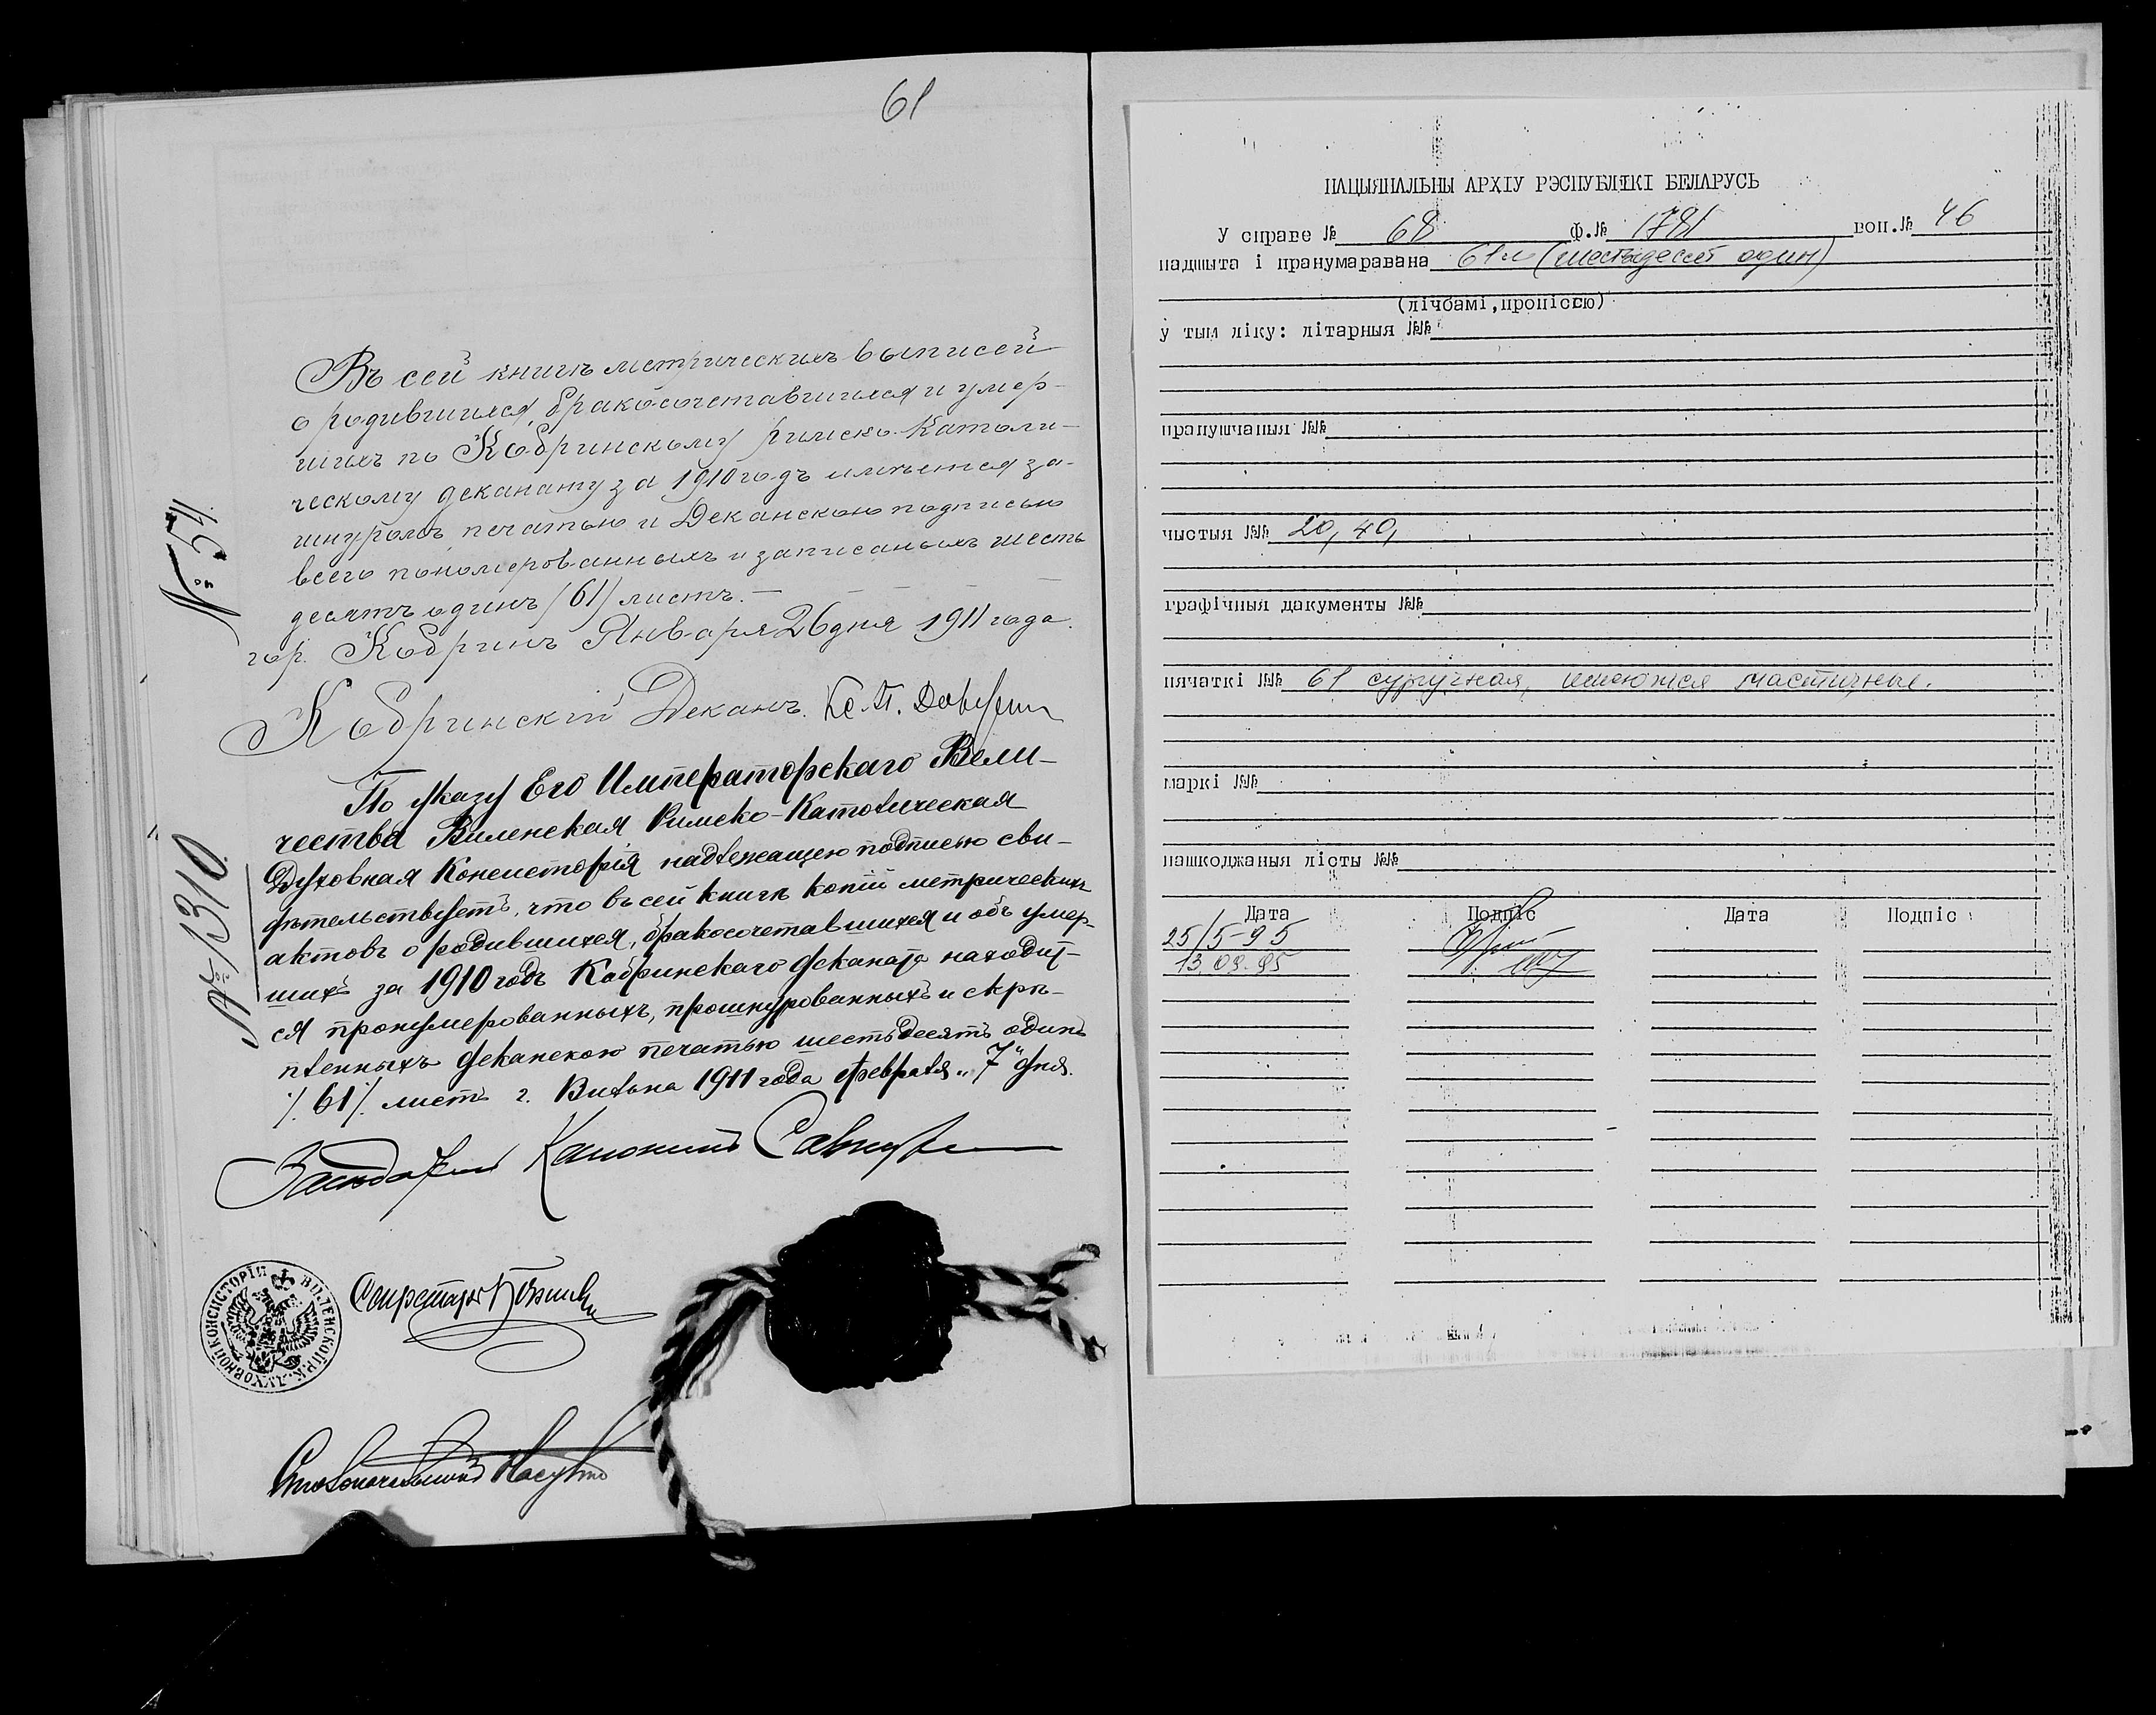 61
Въ сей книгѣ метрическихъ выписей
о родившихся, бракосочетавшихся и умер-
шихъ по Кобринскому римско-католи-
ческому деканату за 1910 годъ имѣется за-
шнуромъ, печатью и Деканскою подписью
всего пономерованныхъ и записаныхъ шесть
десятъ одинъ /61/ листъ. —
гор. Кобринъ Января 26 дня 1911 года.
№ 54
Кобринскій Деканъ. Кс.
По указу Его Императорскаго Вели-
чества Виленская Римско-Католическая
Духовная Консисторія надлежащею подписью сви-
дѣтельствуетъ, что въ сей книгѣ копій метрическихъ
актовъ о родившихся, бракосочетавшихся и объ умер-
шихъ за 1910 годъ Кобринскаго деканата находит-
ся пронумерованныхъ, прошнурованныхъ и скрѣ-
пленныхъ деканскою печатью шестьдесятъ одинъ
/.61/. листъ г. Вильна 1911 года февраля „7" дня.
№ 1310
Засѣдатель Каноникъ
Секретарь
ВИЛЕНСКОЙ Р.К. ДУХОВНОЙ КОНСИСТОРІИ
Столоначальникъ
НАЦЫЯНАЛЬНЫ АРХІУ РЭСПУБЛІКІ БЕЛАРУСЬ
У справе № 68 ф.№ 1781 воп.№ 46
падшыта і пранумаравана 61 л (шестьдесят один)
(лічбамі,пропіссю)
у тым ліку: літарныя №№
прапушчаныя №№
чыстыя №№ 20, 40,
графічныя дакументы №№
пячаткі №№ 61 сургучная, имеются мастичные.
маркі №№
пашкоджаныя лісты №№
Дата Подпіс Дата Подпіс
25/5-95
13.09.95